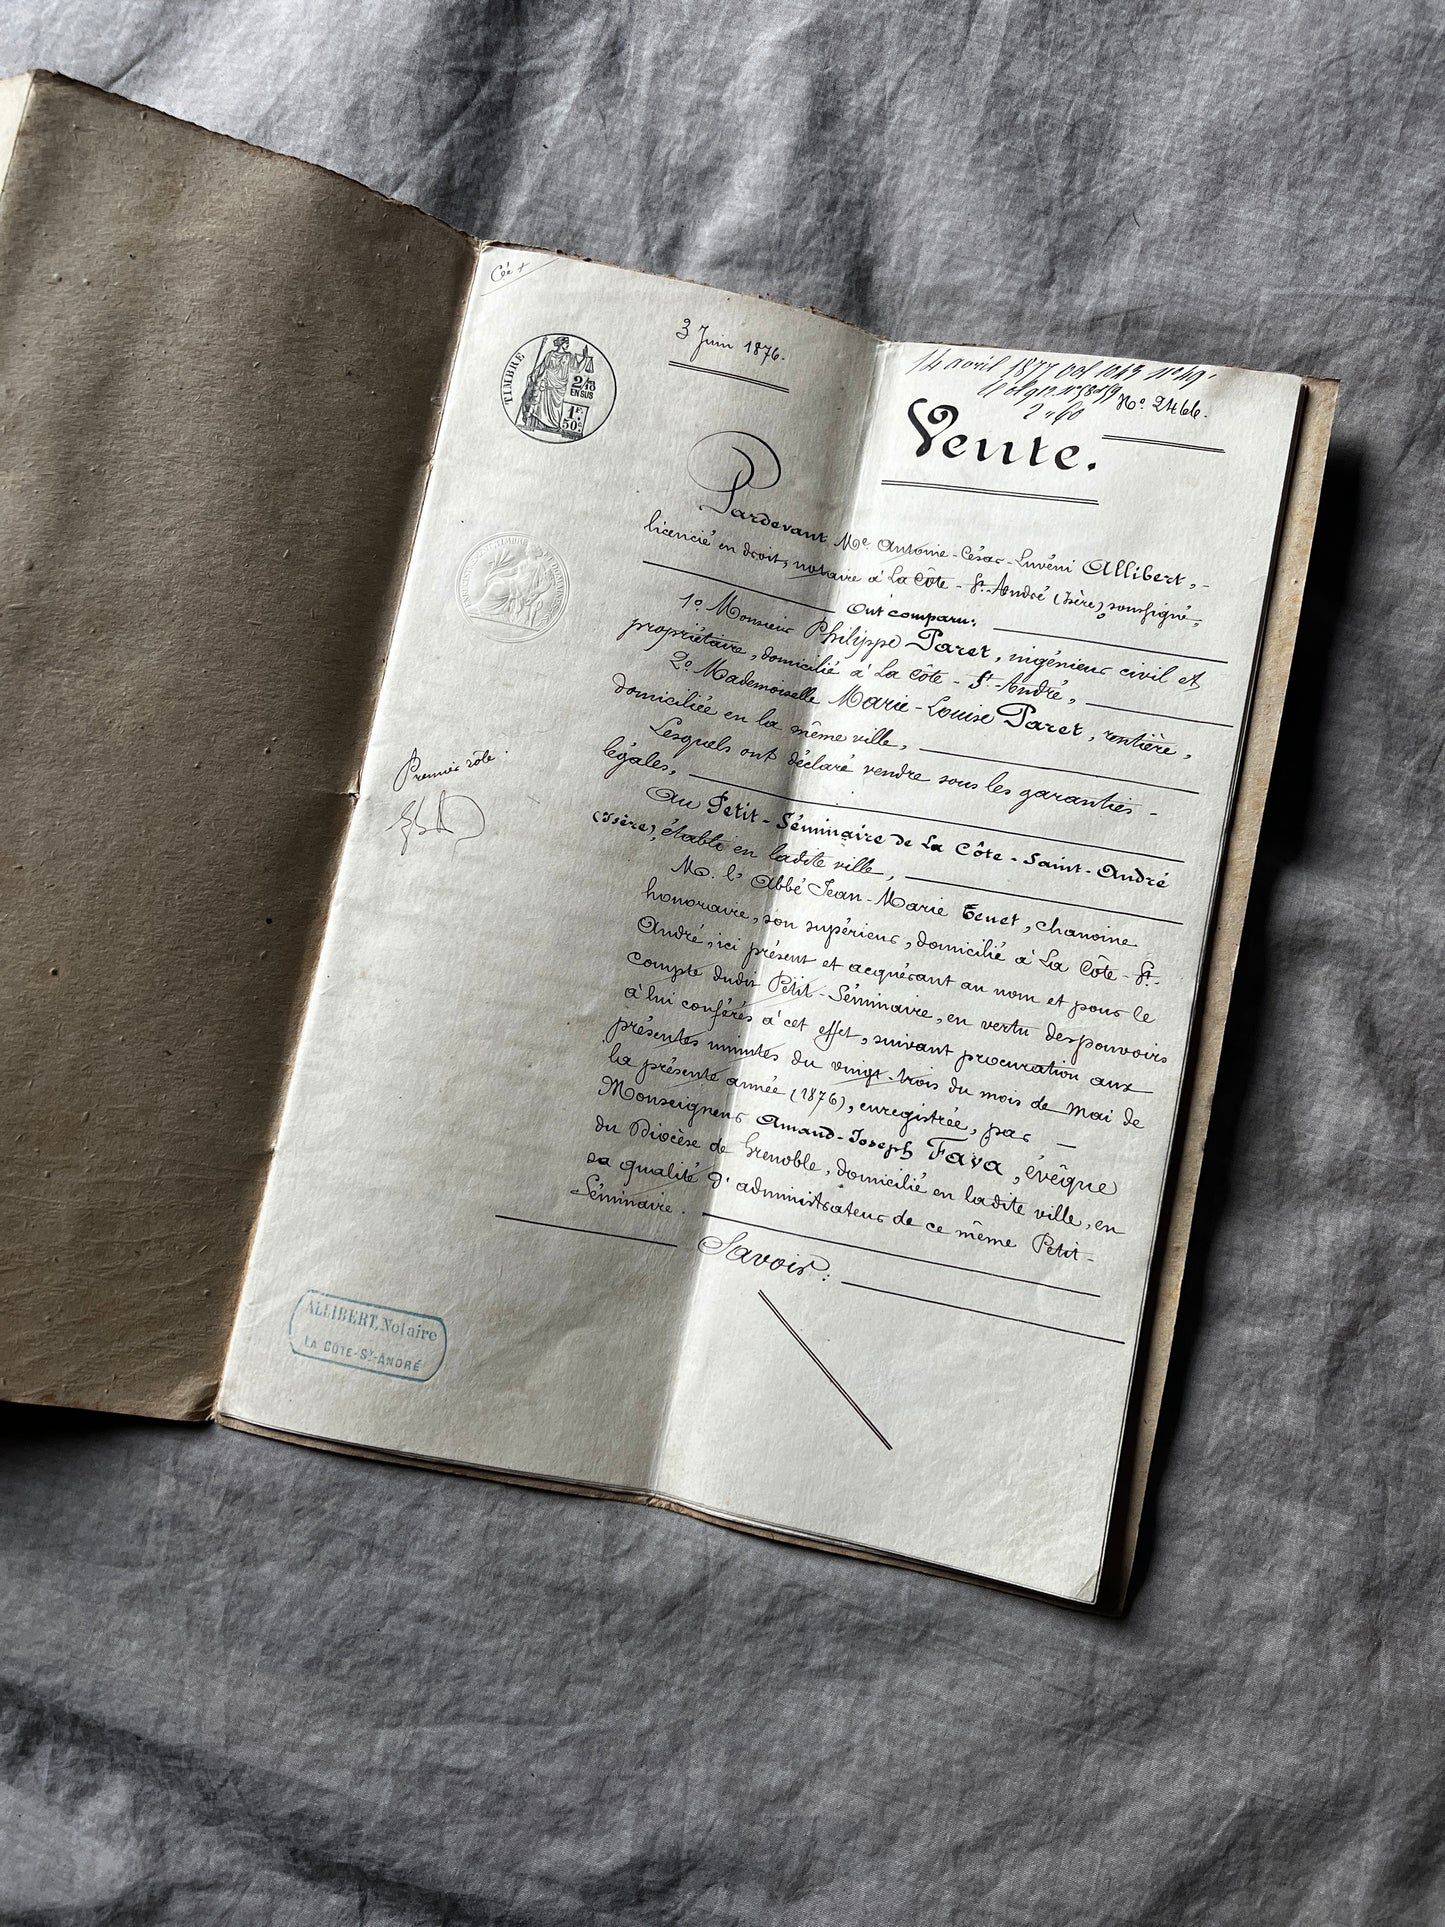 3 Juin 1876.
14 avril 1877 vol 1043 n° 49.
N.° 2466.
TIMBRE
2/10
EN SUS
1F.
50c.
Vente.
Pardevant Me. Antoine-César-Juvéni Allibert,-
licencié en droit, notaire à La Côte-St-André (Isère), soussigné,
Ont comparu:
1° Monsieur Philippe Paret, ingénieur civil et
propriétaire, domicilié à La Côte-St-André,
2° Mademoiselle Marie-Louise Paret, rentière,
domiciliée en la même ville,
Lesquels ont déclaré vendre sous les garanties-
légales,
Au Petit-Séminaire de La Côte-Saint-André
(Isère), établi en ladite ville,
M. l'Abbé Jean-Marie Tenet, chanoine
honoraire, son supérieur, domicilié à La Côte-St-
André, ici présent et acquérant au nom et pour le
compte dudit Petit-Séminaire, en vertu des pouvoirs
à lui conférés à cet effet, suivant procuration aux
présentes minutes du vingt-trois du mois de Mai de
la présente année (1876), enregistrée, par —
Monseigneur Amand-Joseph Fava, évêque
du Diocèse de Grenoble, domicilié en ladite ville, en
sa qualité d'administrateur de ce même Petit-
Séminaire.
Savoir:
Premier rôle
ALLIBERT, Notaire
LA CÔTE-ST-ANDRÉ